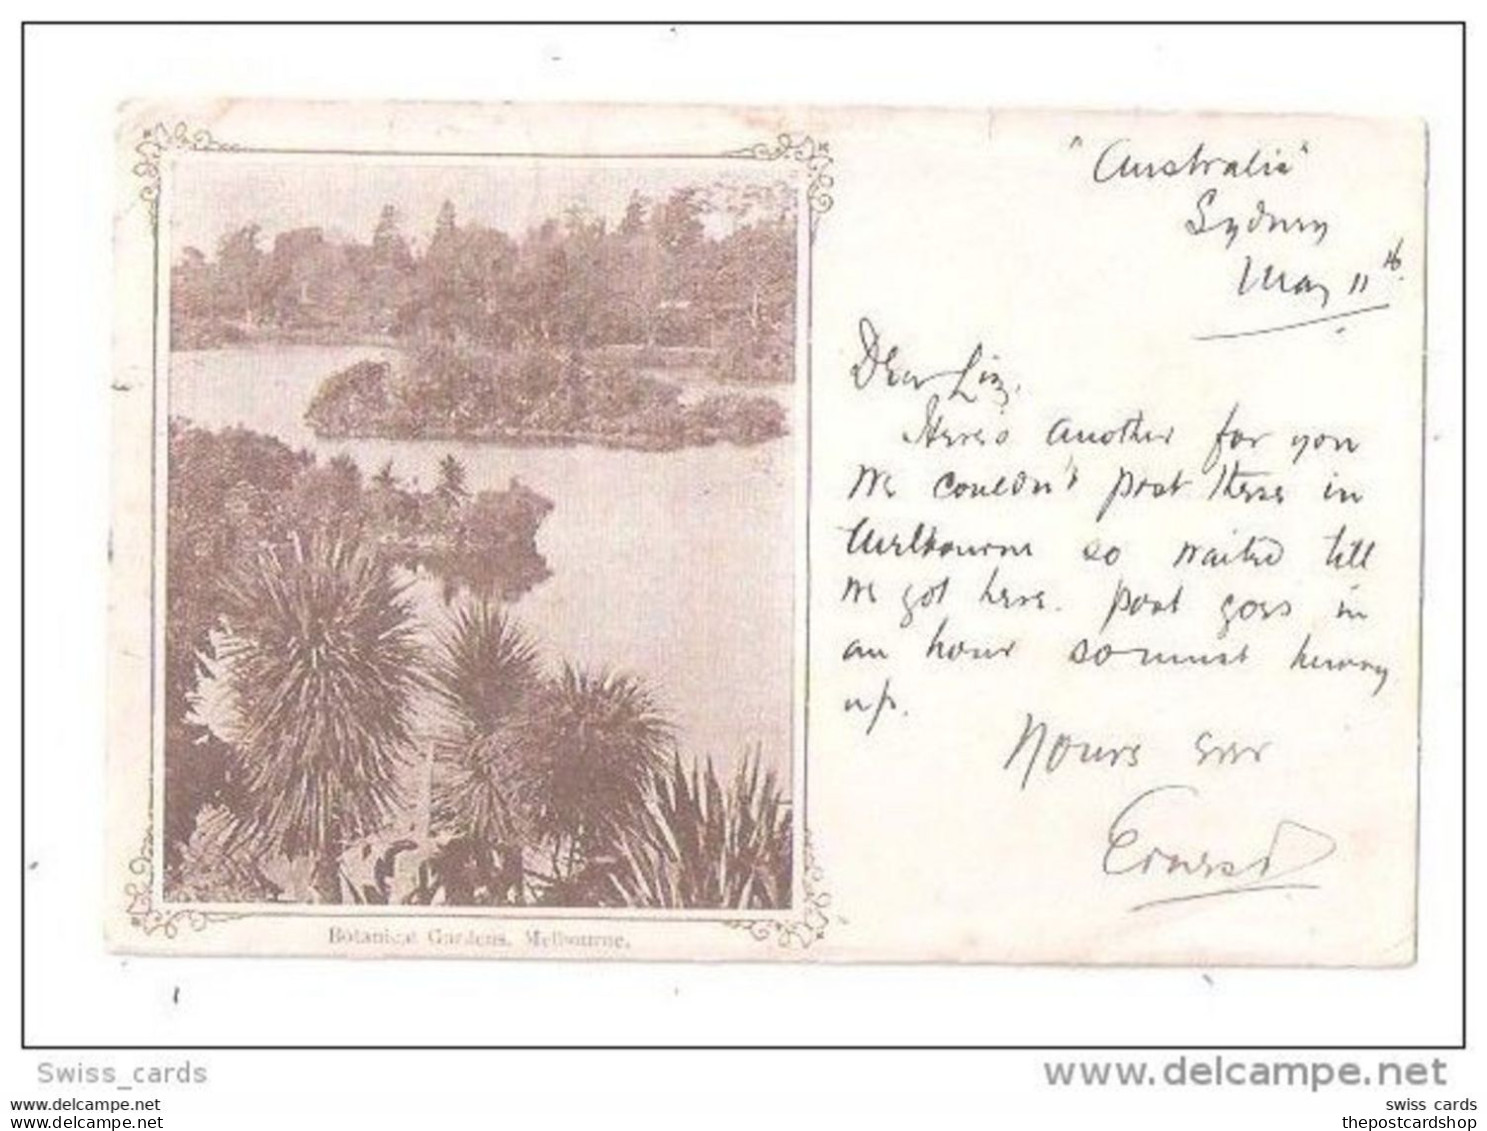 "Australia"
Sydney
May 11th.
Dear Liz.
Here's another for you
We couldn't post these in
Melbourne so waited till
we got here. post goes in
an hour so must hurry
up.
Yours ever
Ernest
Botanical Gardens, Melbourne.
Swiss_cards
www.delcampe.net
www.delcampe.net
www.delcampe.net
swiss cards
thepostcardshop